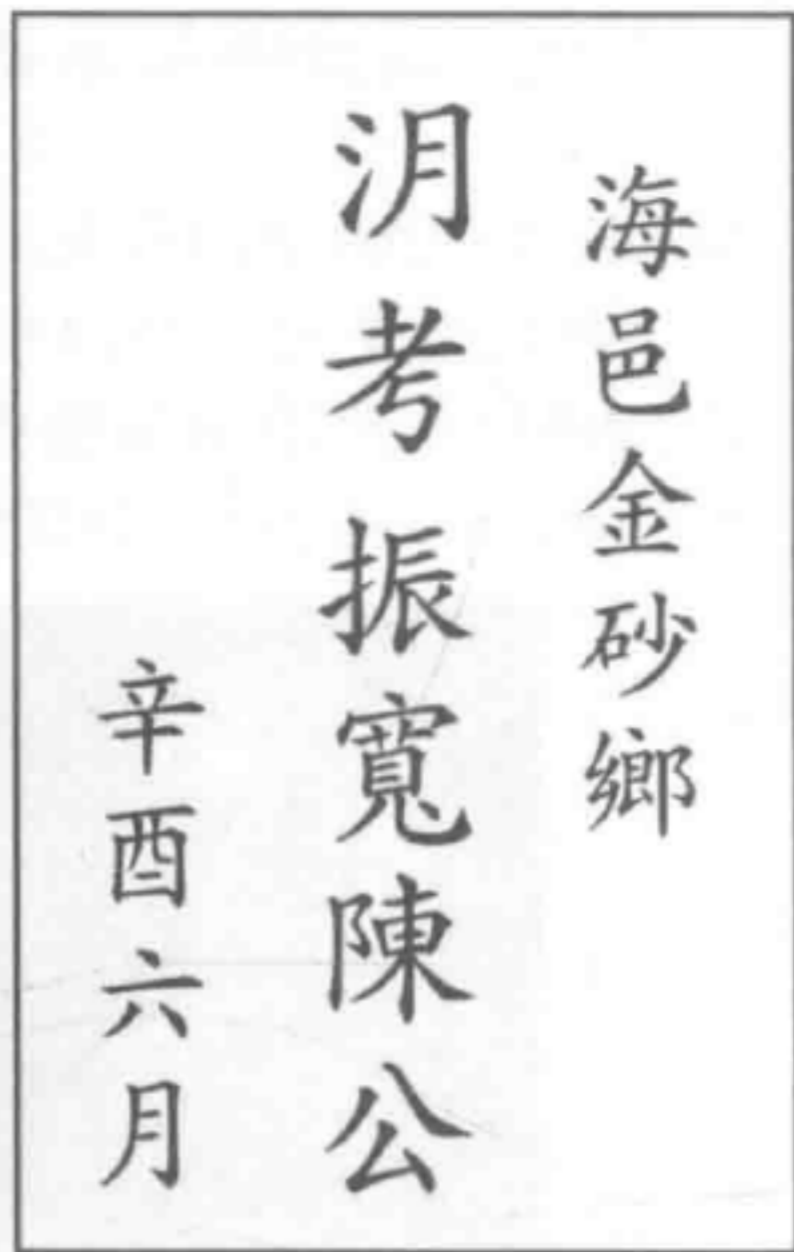 海邑金砂鄉
汈考振寬陳公
辛酉六月